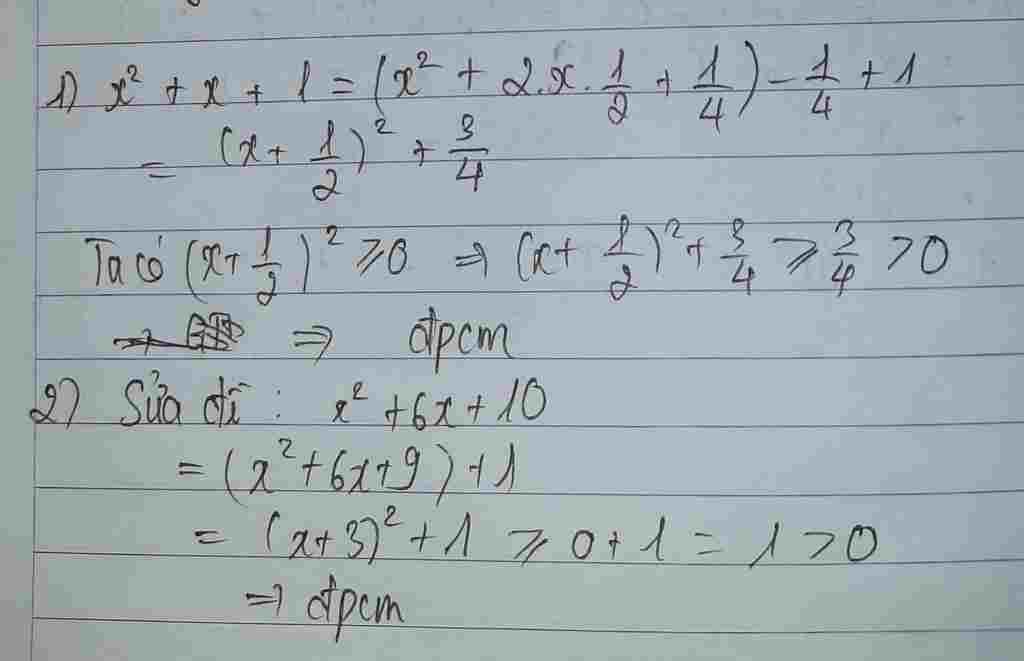 1) x² + x + 1 = (x² + 2.x.1/2 + 1/4) - 1/4 + 1
= (x + 1/2)² + 3/4
Ta có (x + 1/2)² ⩾ 0 ⇒ (x + 1/2)² + 3/4 ⩾ 3/4 > 0
⇒ đpcm
2) Sửa đề : x² + 6x + 10
= (x² + 6x + 9) + 1
= (x + 3)² + 1 ⩾ 0 + 1 = 1 > 0
⇒ đpcm